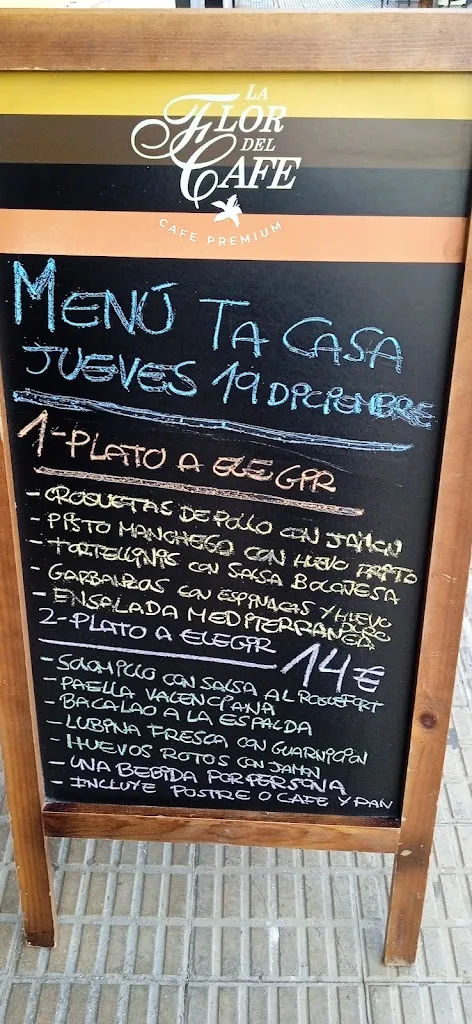 LA
FLOR
DEL
CAFE
CAFE PREMIUM
MENÚ TA CASA
JUEVES 19 DICIEMBRE
1-PLATO A ELEGIR
- CROQUETAS DE POLLO CON JAMON
- PISTO MANCHEGO CON HUEVO FRITO
- TORTELLINIS CON SALSA BOLOÑESA
- GARBANZOS CON ESPINACAS Y HUEVO DURO
- ENSALADA MEDITERRANEA
2-PLATO A ELEGIR 14€
- SOLOMILLO CON SALSA AL ROQUEFORT
- PAELLA VALENCIANA
- BACALAO A LA ESPALDA
- LUBINA FRESCA CON GUARNICION
- HUEVOS ROTOS CON JAMON
- UNA BEBIDA POR PERSONA
- INCLUYE POSTRE O CAFE Y PAN